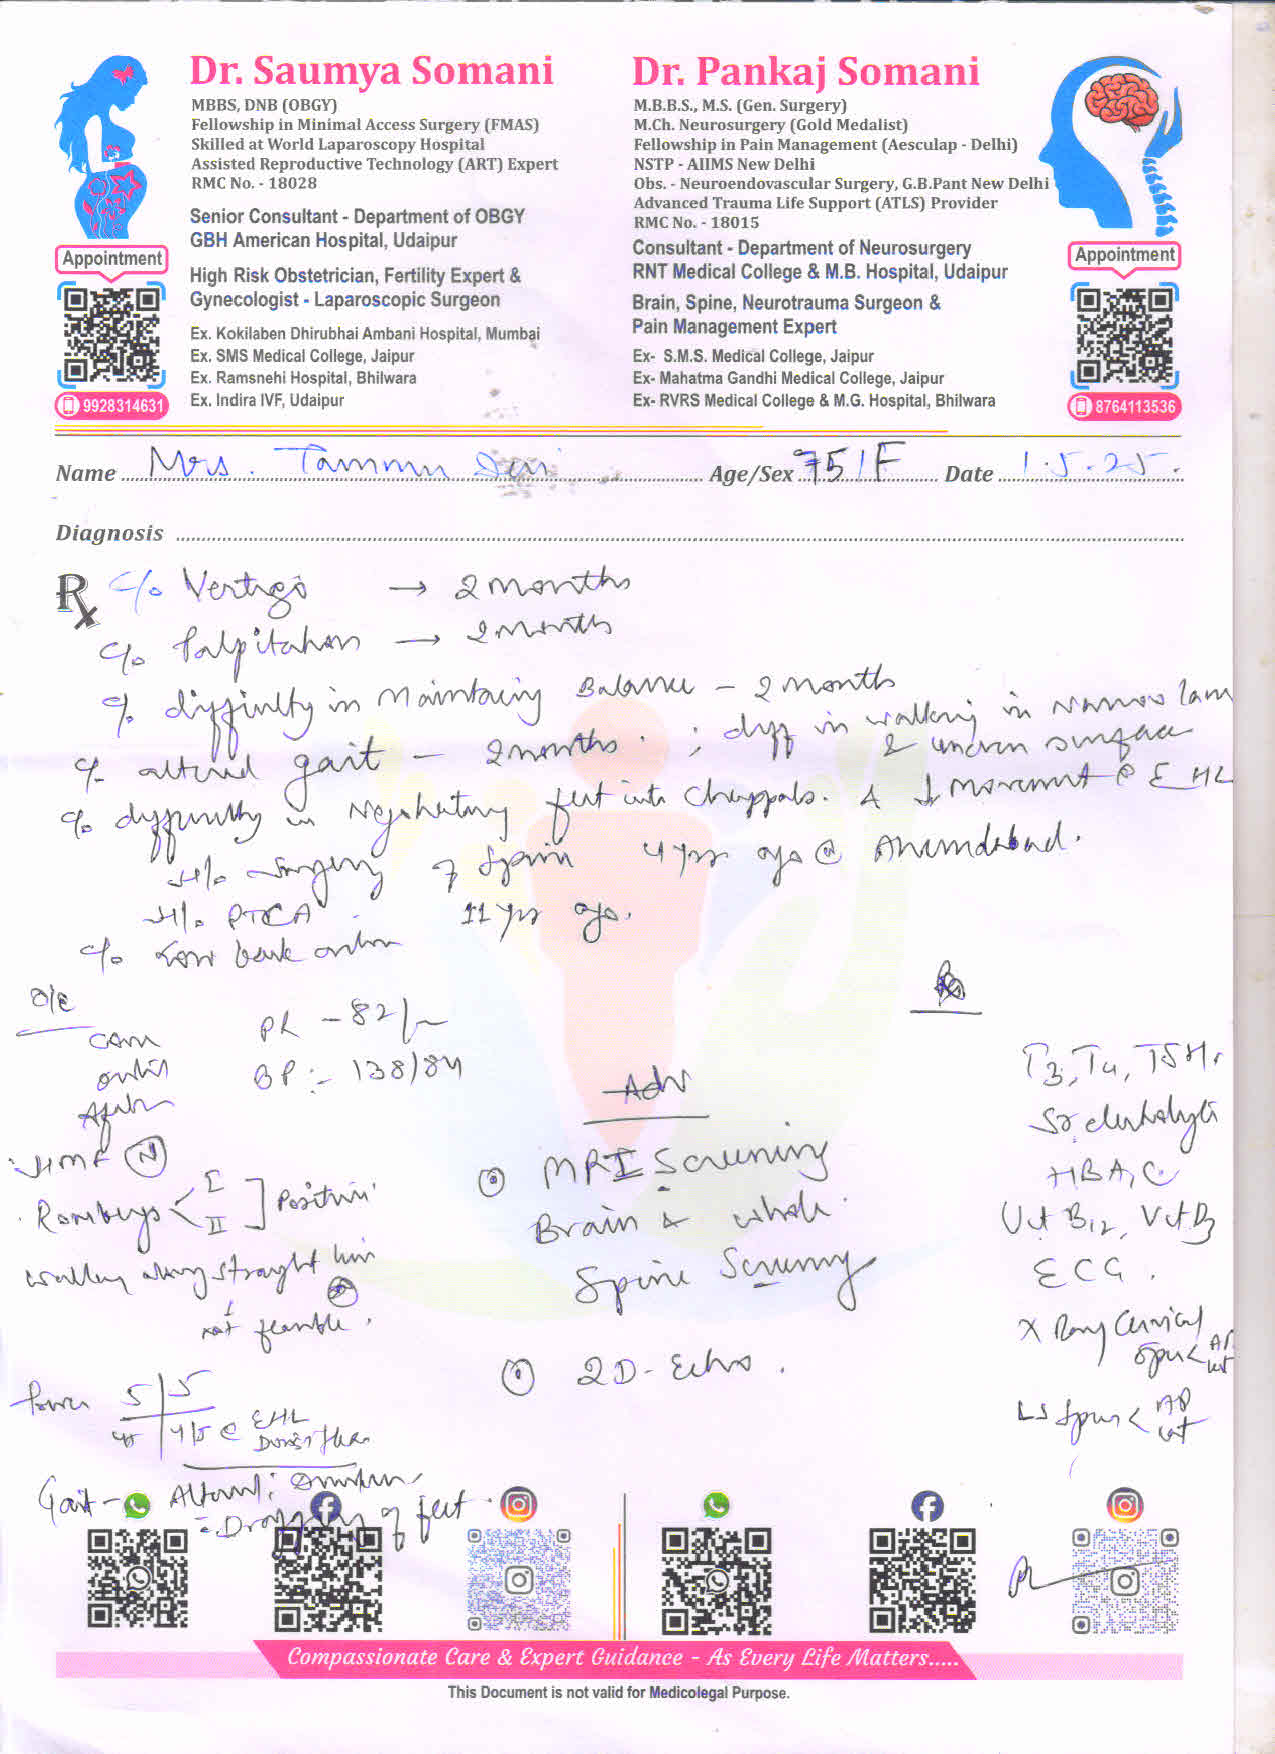 Dr. Saumya Somani
MBBS, DNB (OBGY)
Fellowship in Minimal Access Surgery (FMAS)
Skilled at World Laparoscopy Hospital
Assisted Reproductive Technology (ART) Expert
RMC No. - 18028
Senior Consultant - Department of OBGY
GBH American Hospital, Udaipur
High Risk Obstetrician, Fertility Expert &
Gynecologist - Laparoscopic Surgeon
Ex. Kokilaben Dhirubhai Ambani Hospital, Mumbai
Ex. SMS Medical College, Jaipur
Ex. Ramsnehi Hospital, Bhilwara
Ex. Indira IVF, Udaipur
Appointment
9928314631
Dr. Pankaj Somani
M.B.B.S., M.S. (Gen. Surgery)
M.Ch. Neurosurgery (Gold Medalist)
Fellowship in Pain Management (Aesculap - Delhi)
NSTP - AIIMS New Delhi
Obs. - Neuroendovascular Surgery, G.B.Pant New Delhi
Advanced Trauma Life Support (ATLS) Provider
RMC No. - 18015
Consultant - Department of Neurosurgery
RNT Medical College & M.B. Hospital, Udaipur
Brain, Spine, Neurotrauma Surgeon &
Pain Management Expert
Ex- S.M.S. Medical College, Jaipur
Ex- Mahatma Gandhi Medical College, Jaipur
Ex- RVRS Medical College & M.G. Hospital, Bhilwara
Appointment
8764113536
Name Mrs. Tammu Age/Sex 75/F Date 1.5.25.
Diagnosis
Rx C/o Vertigo → 2 months
C/o Palpitation → 2 months
C/o difficulty in Maintaining Balance - 2 months
C/o altered gait - 2 months. ; diff in walking in narrow lane
& uneven surface
C/o difficulty in negotiating feet into chappals. & ↓ Movement @ EHL
H/o surgery of Spine 4 yrs ago @ Ahmedabad.
H/o PTCA 11 yrs ago.
C/o Low back
O/E
PR - 82/
BP:- 138/84
HMF (N)
Rombergs < I II ] Positive
walking along straight line
↓
not feasible.
Power 5/5
4/5 @ EHL
Gait - Altered;
Dragging of feet.
Adv
MRI Screening
Brain & whole
Spine Screening
2D-Echo.
T3, T4, TSH.
Sr. electrolyte
HBA1C
Vit B12, Vit D3
ECG.
X Ray Cervical
Spine < AP Lat
LS Spine < AP Lat
Compassionate Care & Expert Guidance - As Every Life Matters.....
This Document is not valid for Medicolegal Purpose.